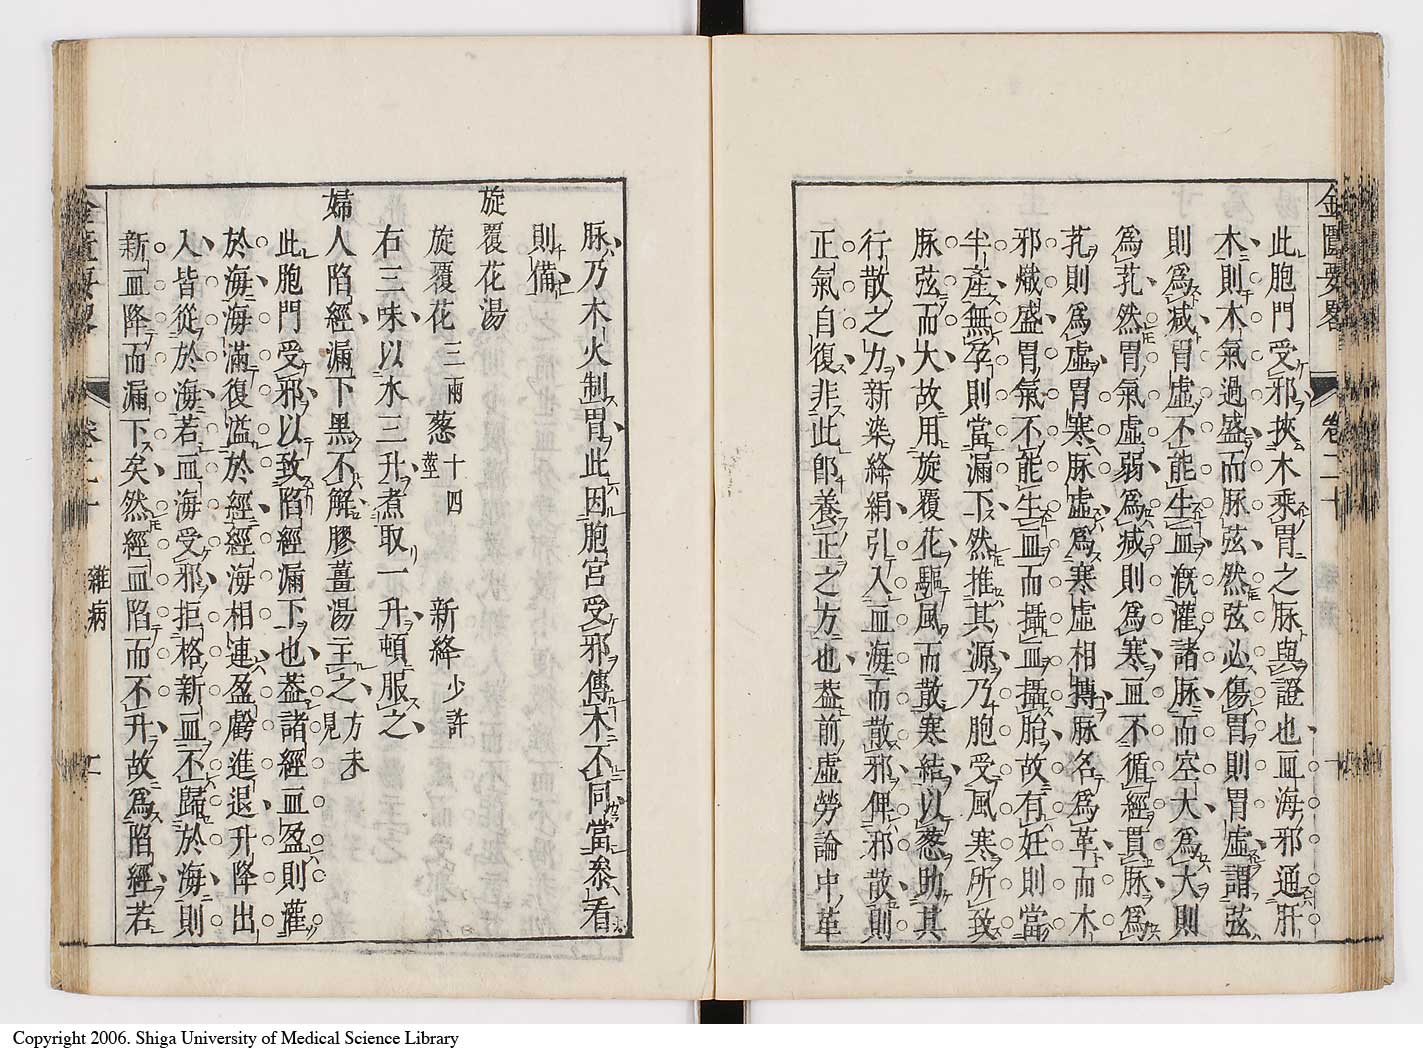 金匱要畧　卷二十
此胞門受邪挾木乘胃之脉與證也血海邪通肝
木則木氣過盛而脉弦然弦必傷胃則胃虛謂弦
則爲减胃虛不能生血漑灌諸脉而空大爲大則
爲芤然胃氣虛弱爲减則爲寒血不循經貫脉爲
芤則爲虛胃寒脉虛爲寒虛相搏脉名爲革而木
邪熾盛胃氣不能生血而攝血攝胎故有妊則當
半產無孕則當漏下然推其源乃胞受風寒所致
脉弦而大故用旋覆花驅風而散寒結以葱助其
行散之力新染絳絹引入血海而散邪俾邪散則
正氣自復非此卽養正之方也葢前虛勞論中革
脉乃木火制胃此因胞宮受邪傳木不同當叅看
則備
旋覆花湯
旋覆花三兩　葱十四莖　新絳少許
右三味以水三升煮取一升頓服之
婦人陷經漏下黑不解膠薑湯主之方未見
此胞門受邪以致陷經漏下也葢諸經血盈則灌
於海海滿復溢於經經海相連盈虧進退升降出
入皆從於海若血海受邪拒格新血不歸於海則
新血降而漏下矣然經血陷而不升故爲陷經若
金匱要畧　卷二十　雜病
Copyright 2006. Shiga University of Medical Science Library